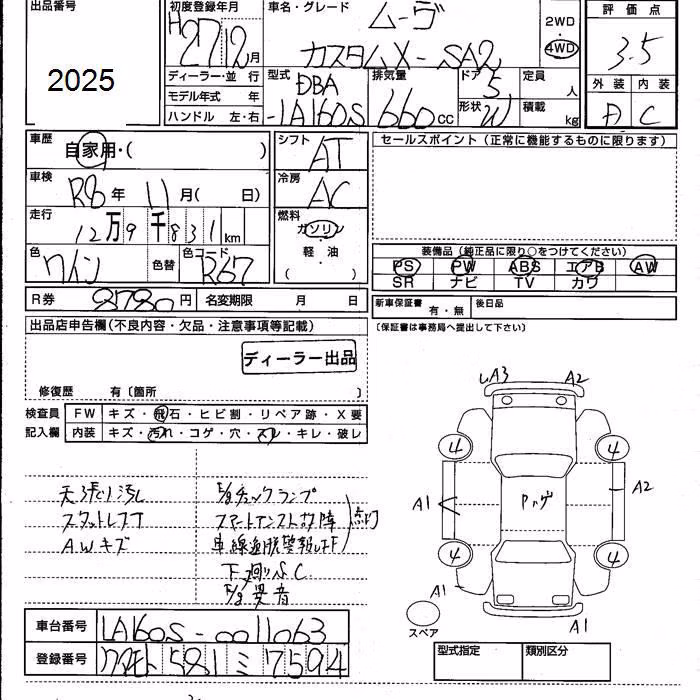 出品番号
2025
初度登録年月
H27 12月
車名・グレード
ムーヴ
カスタムX-SA2
2WD
4WD
評価点
3.5
外装 内装
A C
ディーラー・並行
モデル年式 年
ハンドル 左・右
型式
DBA
-LA160S
排気量
660cc
ドア
5
形状
W
定員
人
積載
kg
車歴
自家用・( )
シフト
AT
車検
R8年 11月( 日)
冷房
AC
走行
12万9千831km
燃料
ガソリン
軽油
( )
色
ワイン
色替
色コード
R67
セールスポイント(正常に機能するものに限ります)
装備品(純正品に限り○をつけてください)
PS PW ABS エアB AW
SR ナビ TV カワ
R券 8780円 名変期限 月 日
新車保証書 有・無 後日品
〔保証書は事務局へ提出して下さい〕
出品店申告欄(不良内容・欠品・注意事項等記載)
ディーラー出品
修復歴 有〔箇所 〕
検査員
記入欄
FW キズ・飛石・ヒビ割・リペア跡・X要
内装 キズ・汚れ・コゲ・穴・スレ・キレ・破レ
天張り汚れ
スタットレスT
A.Wキズ
E/gチェックランプ
スマートアシスト故障
車線逸脱警報レオF
点灯
下廻りS.C.
E/g異音
A3 A2
4 4
A1 Pハゲ A2
4 4
A1 A1
スペア
車台番号 LA160S-0011063
登録番号 クマモト 581 ミ 7594
型式指定 類別区分